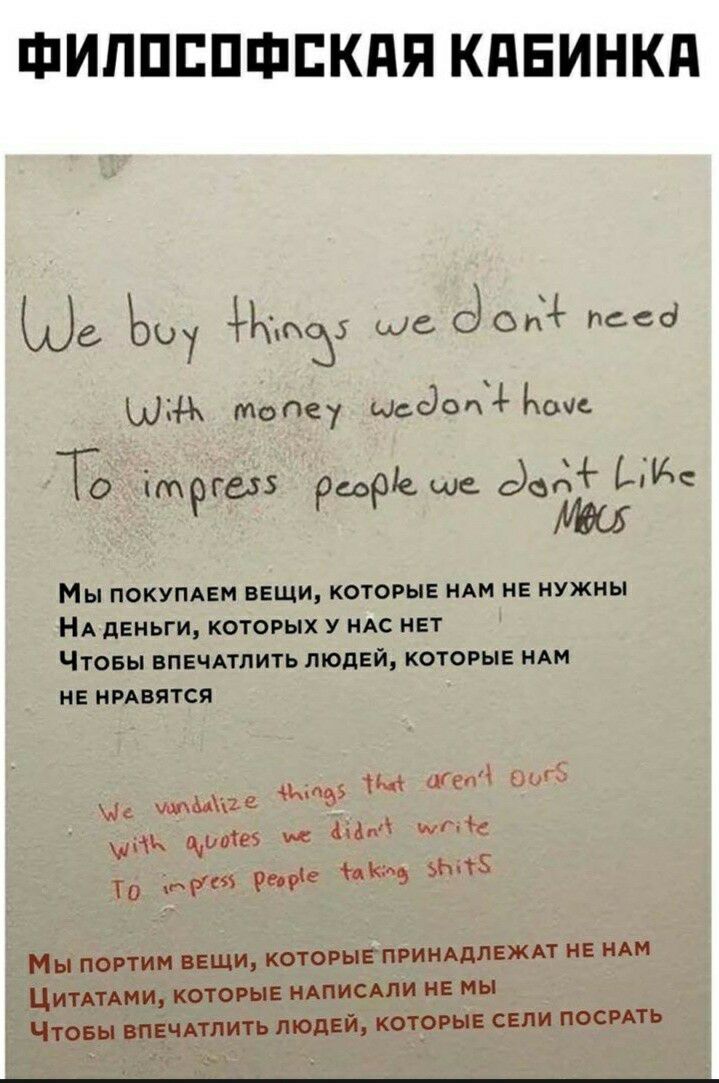 ФИЛОСОФСКАЯ КАБИНКА
We buy things we don't need
With money we don't have
To impress people we don't Like
Мы покупаем вещи, которые нам не нужны
На деньги, которых у нас нет
Чтобы впечатлить людей, которые нам
не нравятся
We vandalize things that aren't ours
With quotes we didn't write
To impress people taking shits
Мы портим вещи, которые принадлежат не нам
Цитатами, которые написали не мы
Чтобы впечатлить людей, которые сели посрать